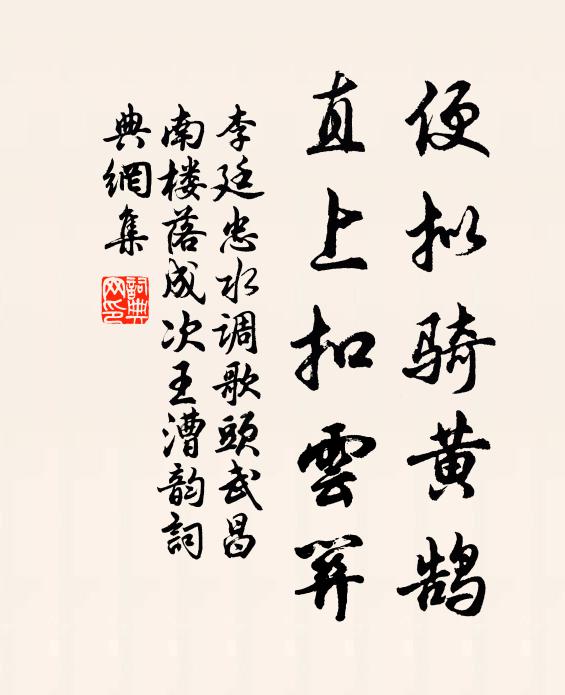 便拟骑黄鹄
直上扣雲関
李廷忠水调歌頭武昌
南楼落成次王漕韵詞
典網集
詞典
网印